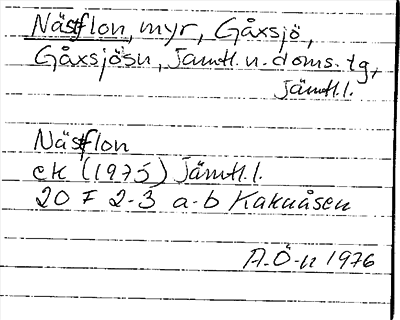 Näsflon, myr, Gåxsjö,
Gåxsjösn, Jämtl. n. doms. tg,
Jämtl.l.
Näsflon
ek (1975) Jämtl.l.
20 F 2-3 a-b Kakuåsen
A.Ö-n 1976